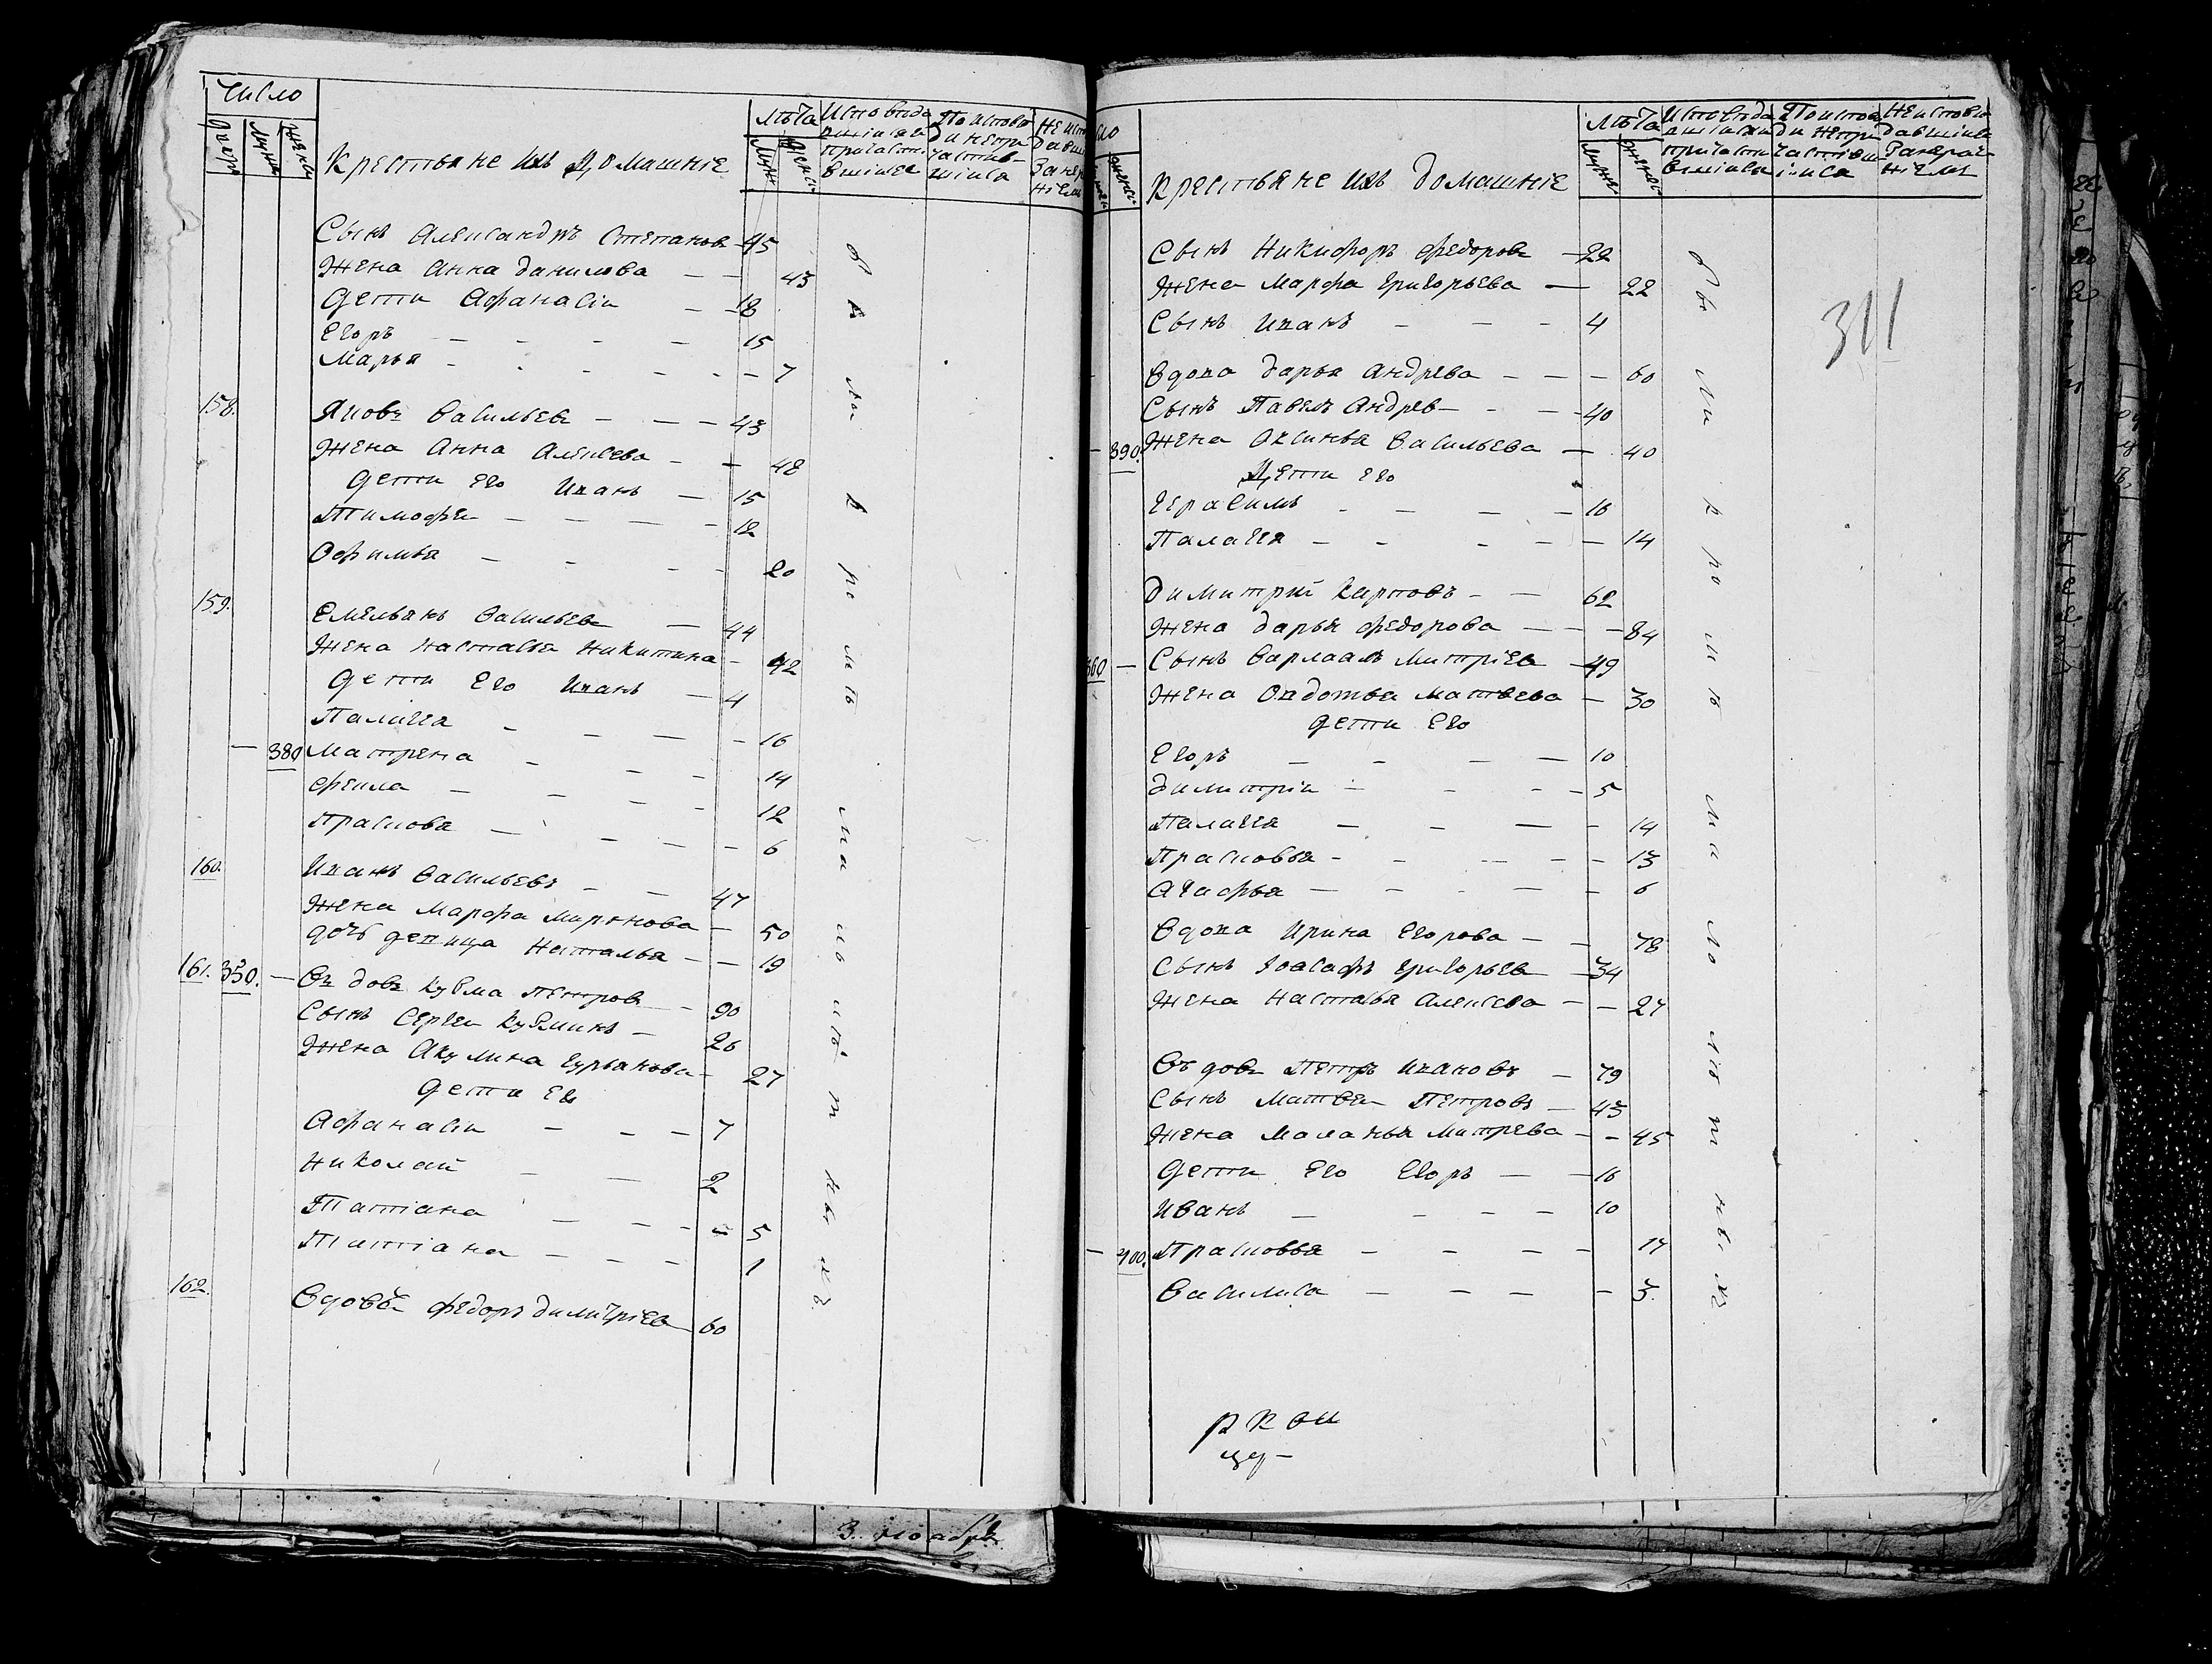 Число
Лѣта
Крестьяне ихъ Домашние
Сынъ Александръ Степановъ 45
Жена Анна Данилова — — 43
Дети Афанасiи — — 18
Егоръ — — — — 15
Марья — — — — 7
158. Яковъ Васильевъ — — — 43
Жена Анна Алексева — — 48
Дети Его Иванъ — 15
Тимофеи — — — — 12
Офимья — — — — 20
159. Емельянъ Васильевъ — 44
Жена Настасья Никитина — 42
Дети Его Иванъ — 4
Палагея — — — — 16
— 380 Матрена — — — 14
Фекла — — — — 12
Прасковя — — — — 6
160. Иванъ Васильевъ — — 47
Жена Марфа Миронова — 50
Дочь девица Наталья — — 19
161. 350. — Въдовъ Кузма Петровъ — 90
Сынъ Сергеи Кузминъ — 26
Жена Акулина Гурьянова — 27
Дети Ево
Афанасiи — — — 7
Николай — — 2
Татiана — — — — 5
Татiана — — — 1
162. Вдовъ Федоръ Димитрiевъ 60
3. ноабря
Лѣта
Крестьяне ихъ домашние
311
Сынъ Никифоръ Федоровъ — 22
Жена Марфа Григорьева — 22
Сынъ Иванъ — — — 4
Вдова Дарья Андрева — — — 60
Сынъ Павелъ Андрев — — — 40
— 390. Жена Оксинья Васильева — 40
Дети Его
Герасимъ — — — — 16
Палагея — — — — — 14
Димитрий Карповъ — — 62
Жена Дарья Федорова — — — 84
360 — Сынъ Варлаамъ Митрiевъ — 49
Жена Овдотья Матвева — 30
Дети Его
Егоръ — — — — 10
Димитрiи — — — — 5
Палагея — — — — 14
Прасковья — — — — — 13
Агафья — — — — — 6
Вдова Ирина Егорова — — 78
Сынъ Иоасафъ Григорьевъ — 34
Жена Настасья Алексева — — 27
Въдовъ Петръ Ивановъ — 79
Сынъ Матвеи Петровъ — 43
Жена Маланья Митрева — — 45
Дети Его Егоръ — — 16
Иванъ — — — — 10
— 400. Прасковья — — — — 17
Василиса — — — — 3.